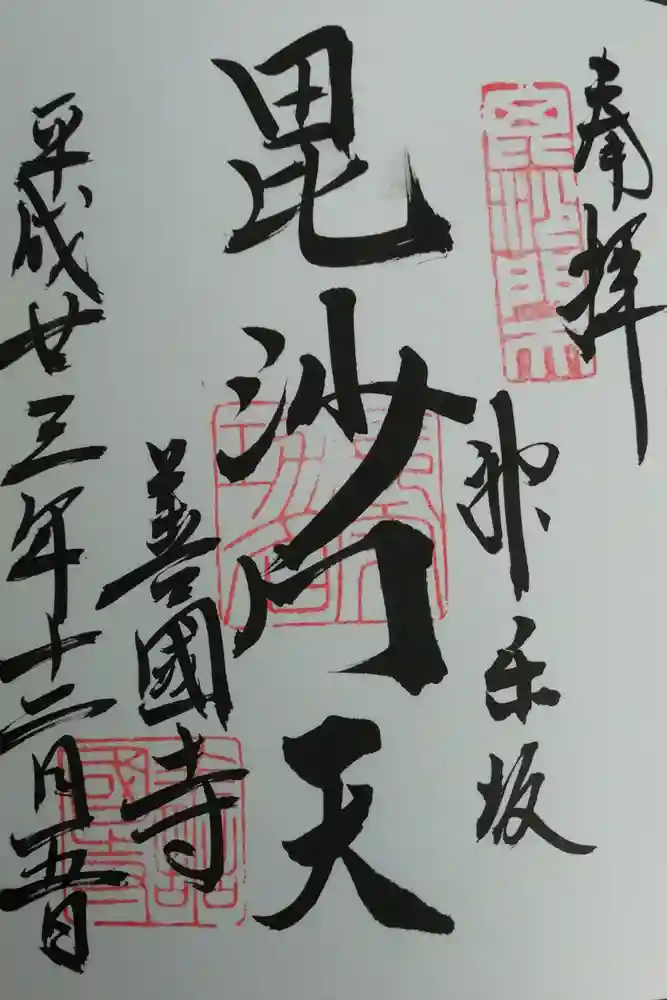 奉拝
神楽坂
毘沙門天
善國寺
平成廿三年十二月五日
毘沙門天